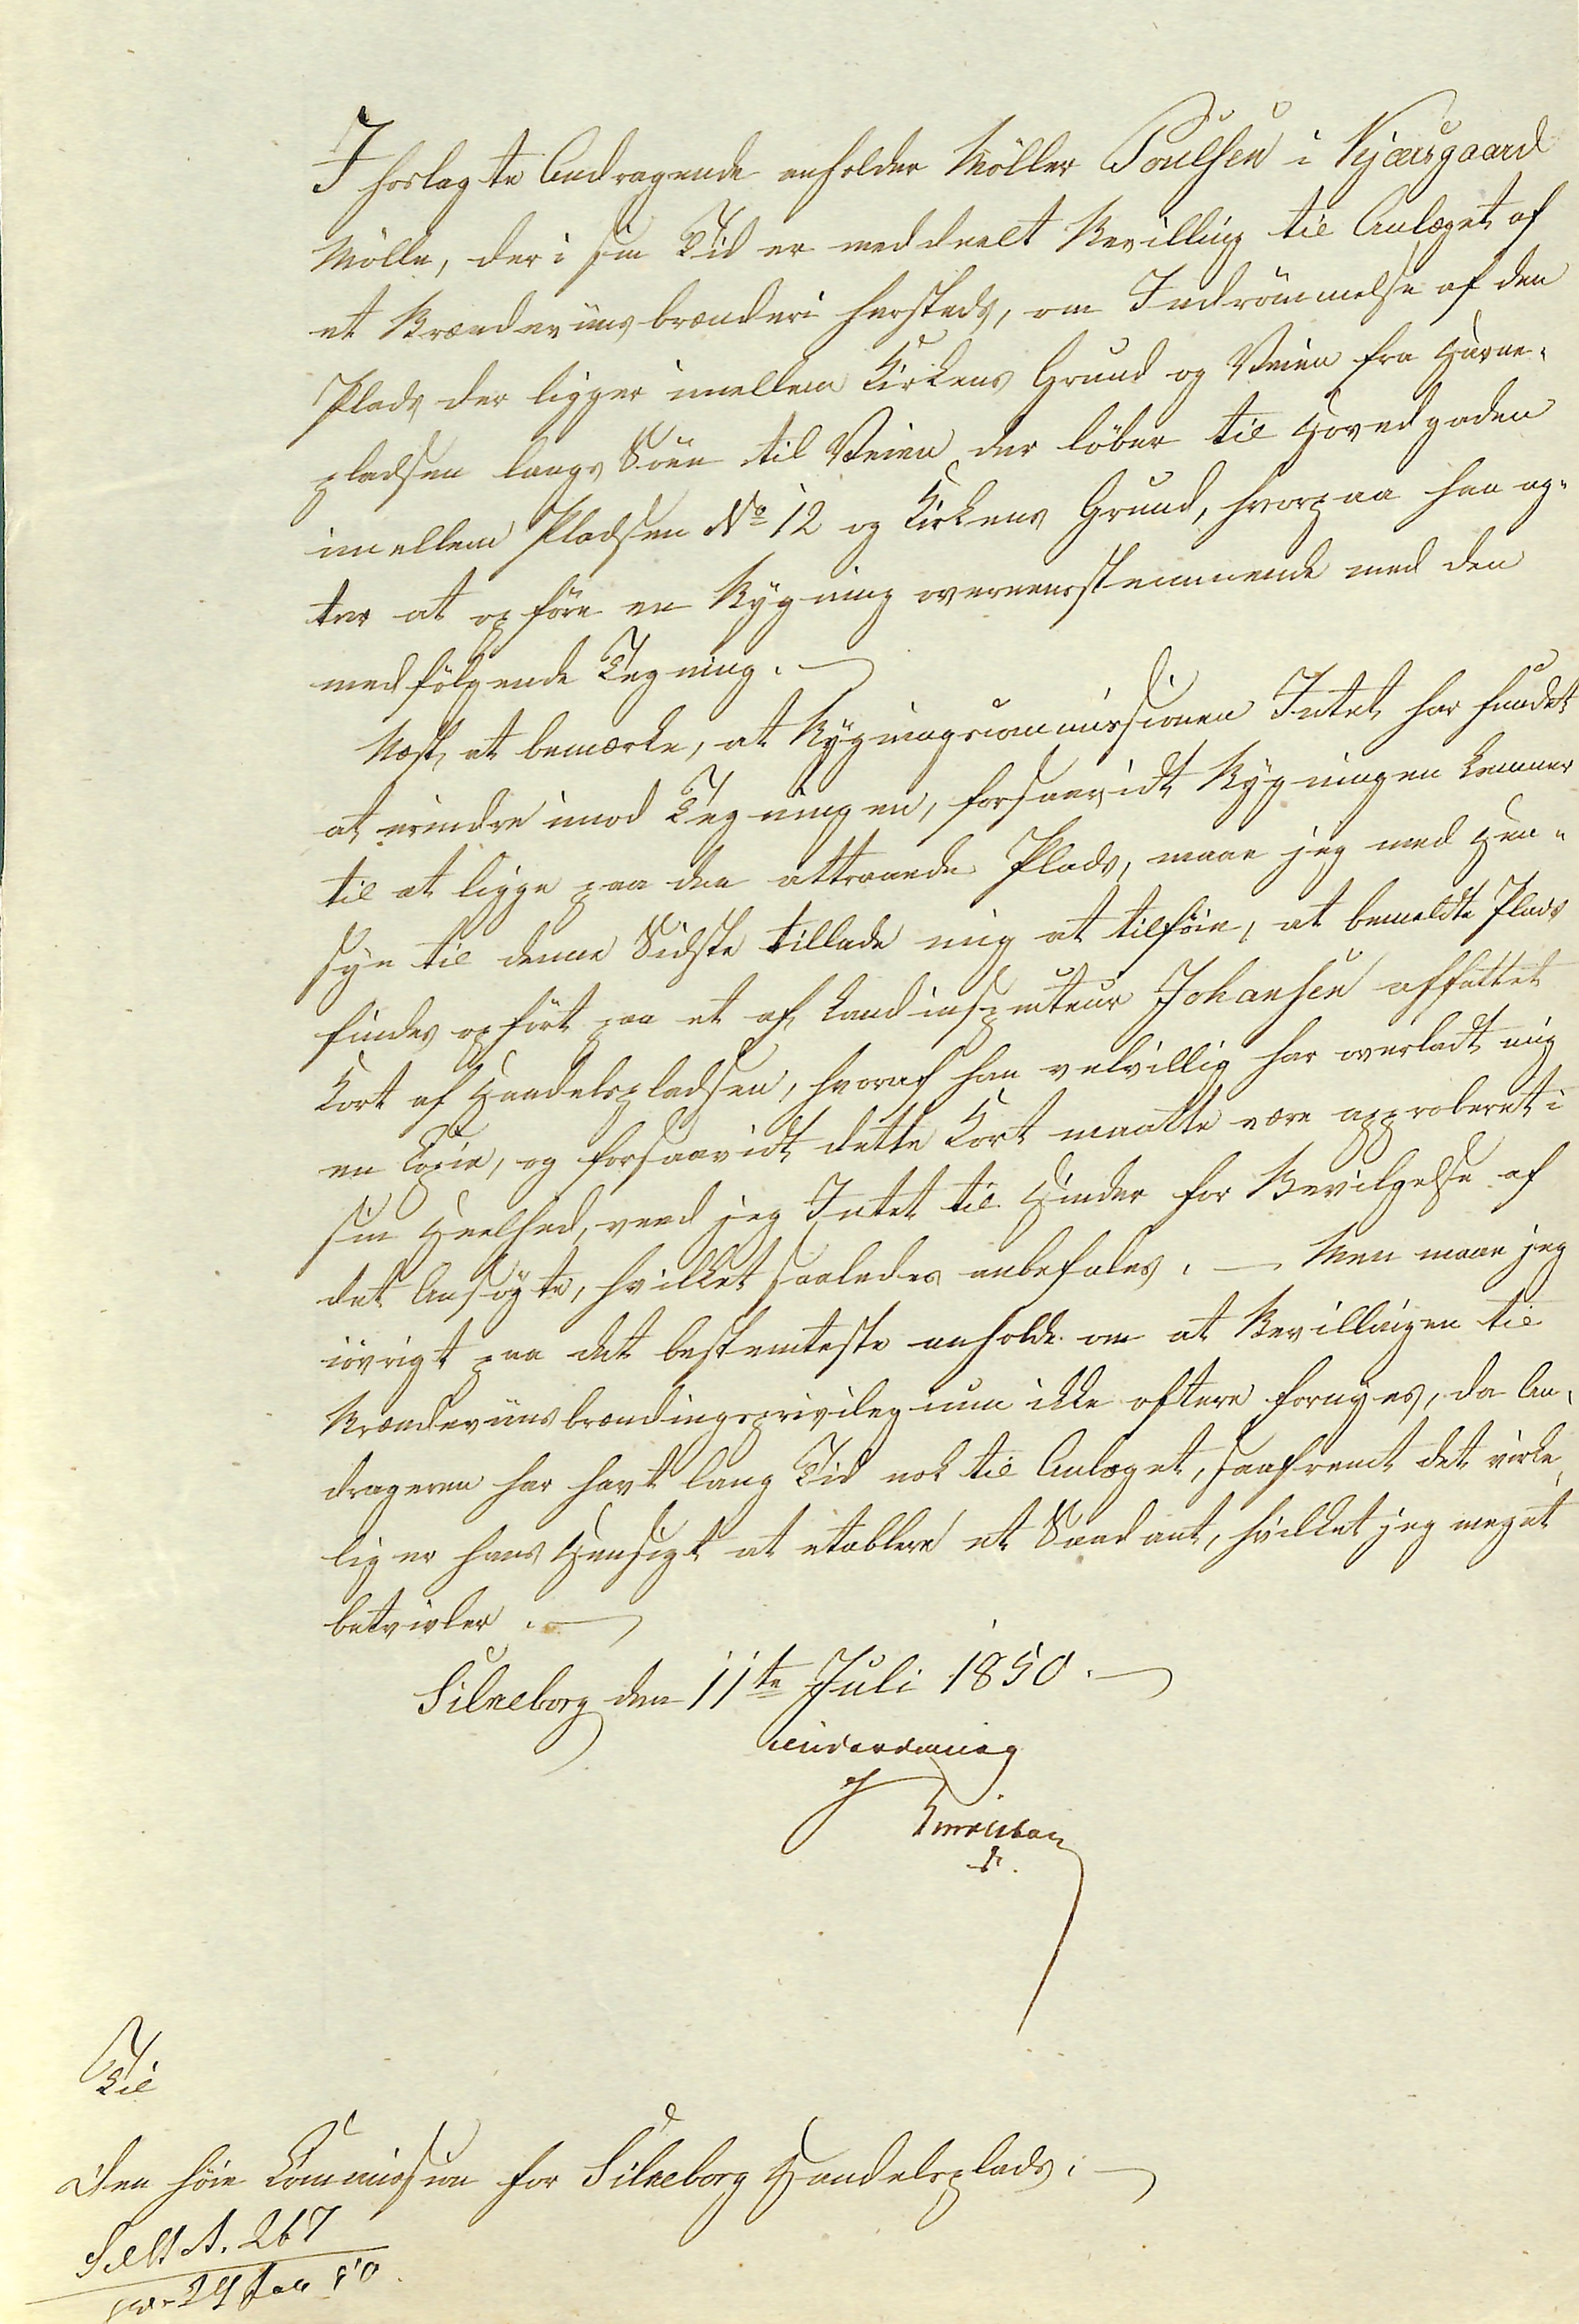 I hoslagte Andragende anholder Möller Poulsen i Kjærsgaard
Mölle, der i sin Tid er meddeelt Bevilling til Anlæget af
et Brændeviinsbrænderi hersteds, om Indrömmelse af den
Plads der ligger imellem Kirkens Grund og Veien fra Havne-
pladsen langs Söen til Veien der löber til Hovedgaden
imellem Pladsen No 12 og Kirkens Grund, hvorpaa han ag-
ter at opföre en Bygning overeensstemmende med den
medfölgende Tegning. —
Næst at bemærke, at Bygningscommissionen Intet har fundet
at erindre imod Tegningen, forsaavidt Bygningen kommer
til at ligge paa den attraaede Plads, maae jeg med Hen-
syn til denne Sidste tillade mig at tilföie, at bemeldte Plads
findes opfört paa et af Landinspecteur Johansen affattet
Kort af Handelspladsen, hvoraf han velvillig har overladt mig
en Copie, og forsaavidt dette Kort maatte være approberet i
sin Heelhed, veed jeg Intet til Hinder for Bevilgelse af
det Ansögte, hvilket saaledes anbefales. — Men maae jeg
iövrigt paa det bestemteste anholde om at Bevillingen til
Brændeviinsbrændingsprivilegium ikke oftere fornyes, da An-
drageren har havt lang Tid nok til Anlæget, saafremt det virke-
lig er hans Hensigt at etablere et Saadant, hvilket jeg meget
betvivler. —
Silkeborg den 11te Juli 1850. —
underdanig
Til
Den höie Commission for Silkeborg Handelsplads. —
A. 267